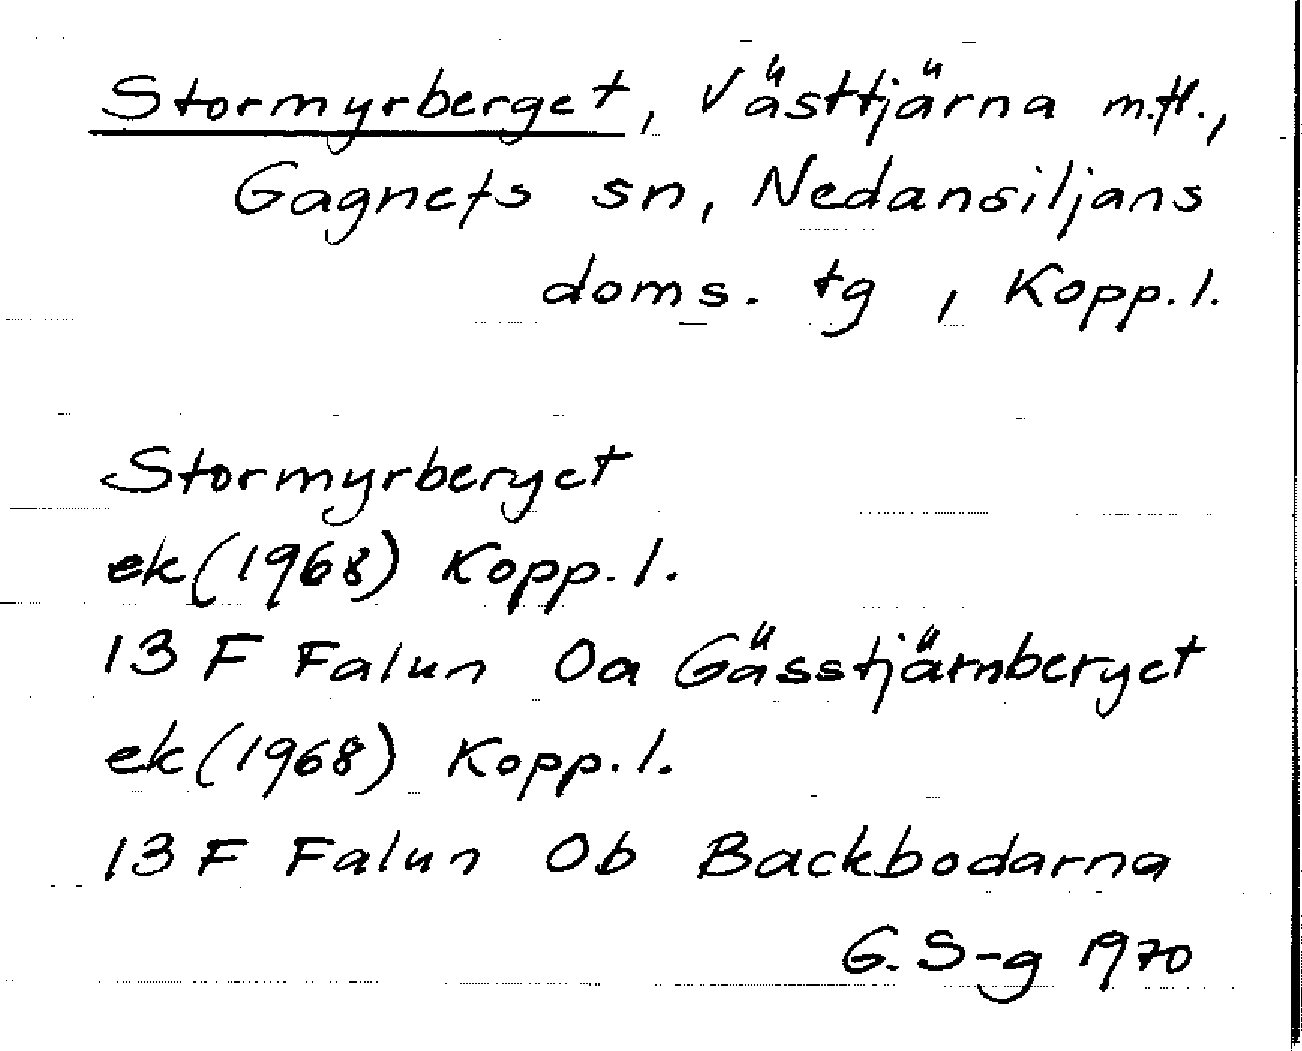 Stormyrberget, Västtjärna m.fl.,
Gagnefs sn, Nedansiljans
doms. tg , Kopp. l.
Stormyrberget
ek (1968) Kopp. l.
13 F Falun 0a Gässtjärnberget
ek (1968) Kopp. l.
13 F Falun 0b Backbodarna
G. S-g 1970